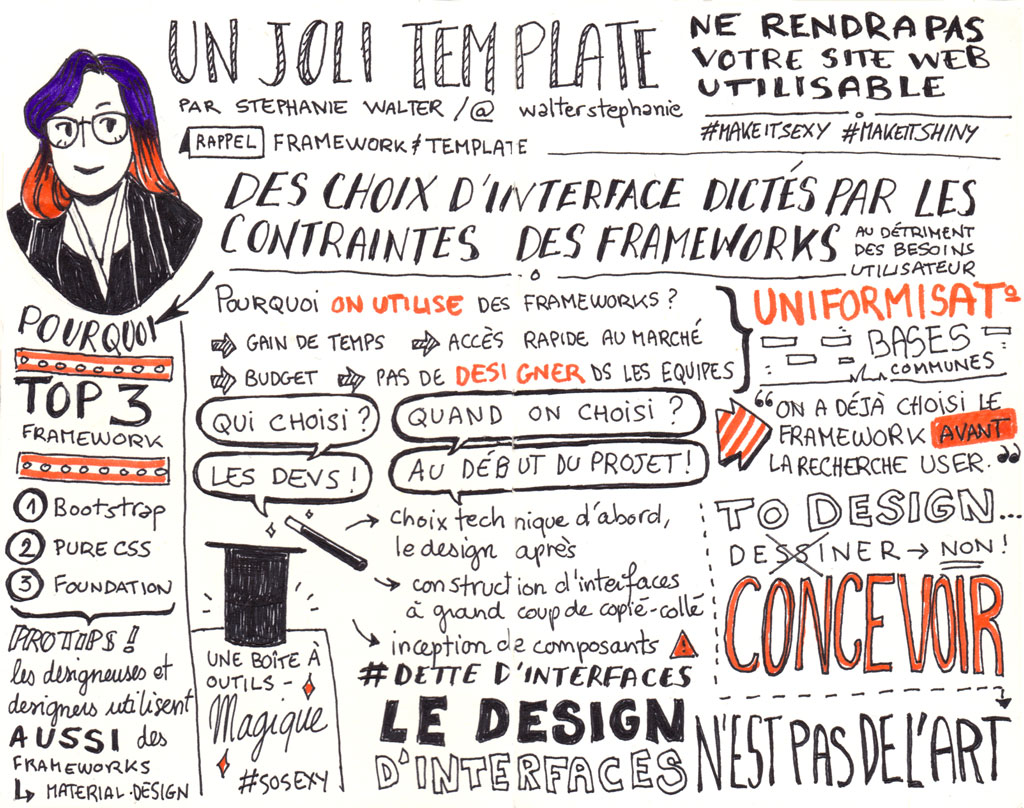 UN JOLI TEMPLATE
NE RENDRA PAS
VOTRE SITE WEB
UTILISABLE
PAR STEPHANIE WALTER /@ walterstephanie
#MAKEITSEXY #MAKEITSHINY
RAPPEL FRAMEWORK ≠ TEMPLATE
DES CHOIX D'INTERFACE DICTÉS PAR LES
CONTRAINTES DES FRAMEWORKS
AU DÉTRIMENT
DES BESOINS
UTILISATEUR
POURQUOI
TOP 3
FRAMEWORK
1 Bootstrap
2 PURE CSS
3 FOUNDATION
PROTIPS!
les designeuses et
designers utilisent
AUSSI des
FRAMEWORKS
↳ MATERIAL DESIGN
POURQUOI ON UTILISE DES FRAMEWORKS ?
⇨ GAIN DE TEMPS ⇨ ACCÈS RAPIDE AU MARCHÉ
⇨ BUDGET ⇨ PAS DE DESIGNER DS LES EQUIPES
UNIFORMISATº
BASES
COMMUNES
QUI CHOISI ?
LES DEVS !
QUAND ON CHOISI ?
AU DÉBUT DU PROJET !
“ON A DÉJÀ CHOISI LE
FRAMEWORK AVANT
LA RECHERCHE USER.”
→ choix technique d'abord,
le design après
→ construction d'interfaces
à grand coup de copié-collé
→ inception de composants
#DETTE D'INTERFACES
UNE BOÎTE À
OUTILS -
Magique
#SOSEXY
TO DESIGN...
DESSINER → NON !
CONCEVOIR
LE DESIGN
D'INTERFACES
N'EST PAS DE L'ART